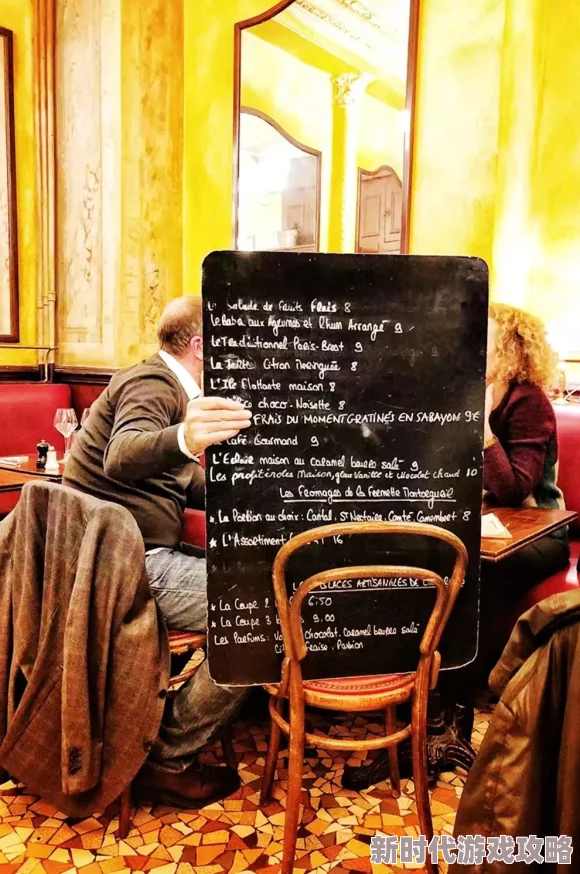 Salade de fruits Frais 8
Le Baba aux Agrumes et Rhum Arrangé 9
Le Traditionnel Paris-Brest 9
La Tarte Citron Meringuée 8
L'Ile Flottante maison 8
choco - Noisette 8
FRAIS DU MOMENT GRATINÉS EN SABAYON 9€
Café Gourmand 9
L'Eclair maison au Caramel beurre salé 9
Les profiteroles Maison, glace Vanille et chocolat chaud 10
Les Fromages de la Fermette Montorgueil
* La Portion au choix: Cantal, St Nectaire, Comté, Camembert 8
* L'Assortiment 16
GLACES ARTISANALES DE
* La Coupe 2 6.50
* La Coupe 3 9.00
Les Parfums: Chocolat, Caramel beurre salé
Fraise, Passion
新时代游戏攻略